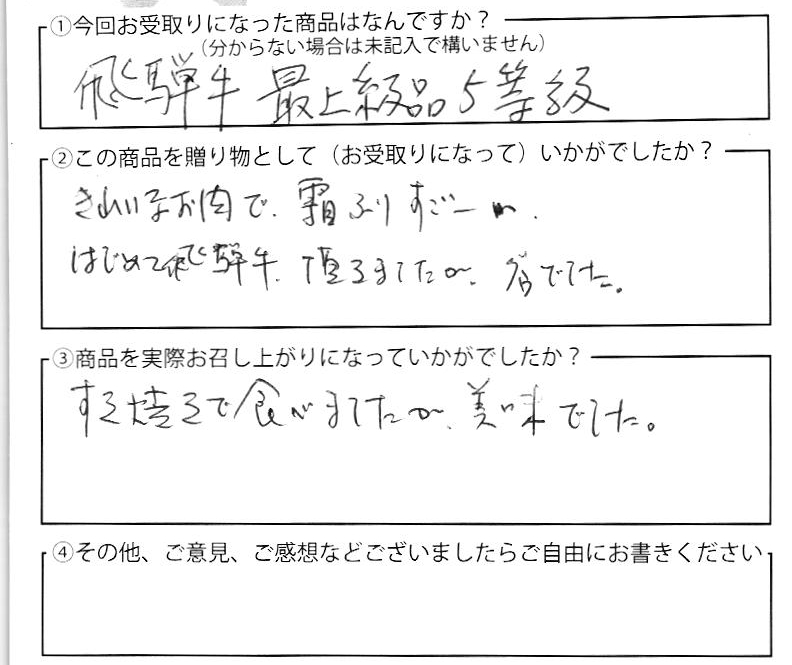 ①今回お受取りになった商品はなんですか？
（分からない場合は未記入で構いません）
飛騨牛 最上級品5等級
②この商品を贈り物として（お受取りになって）いかがでしたか？
きれいなお肉で、霜ふりすごーい、
はじめて飛騨牛、頂きましたが、でした。
③商品を実際お召し上がりになっていかがでしたか？
すき焼きで食べましたが、美味でした。
④その他、ご意見、ご感想などございましたらご自由にお書きください